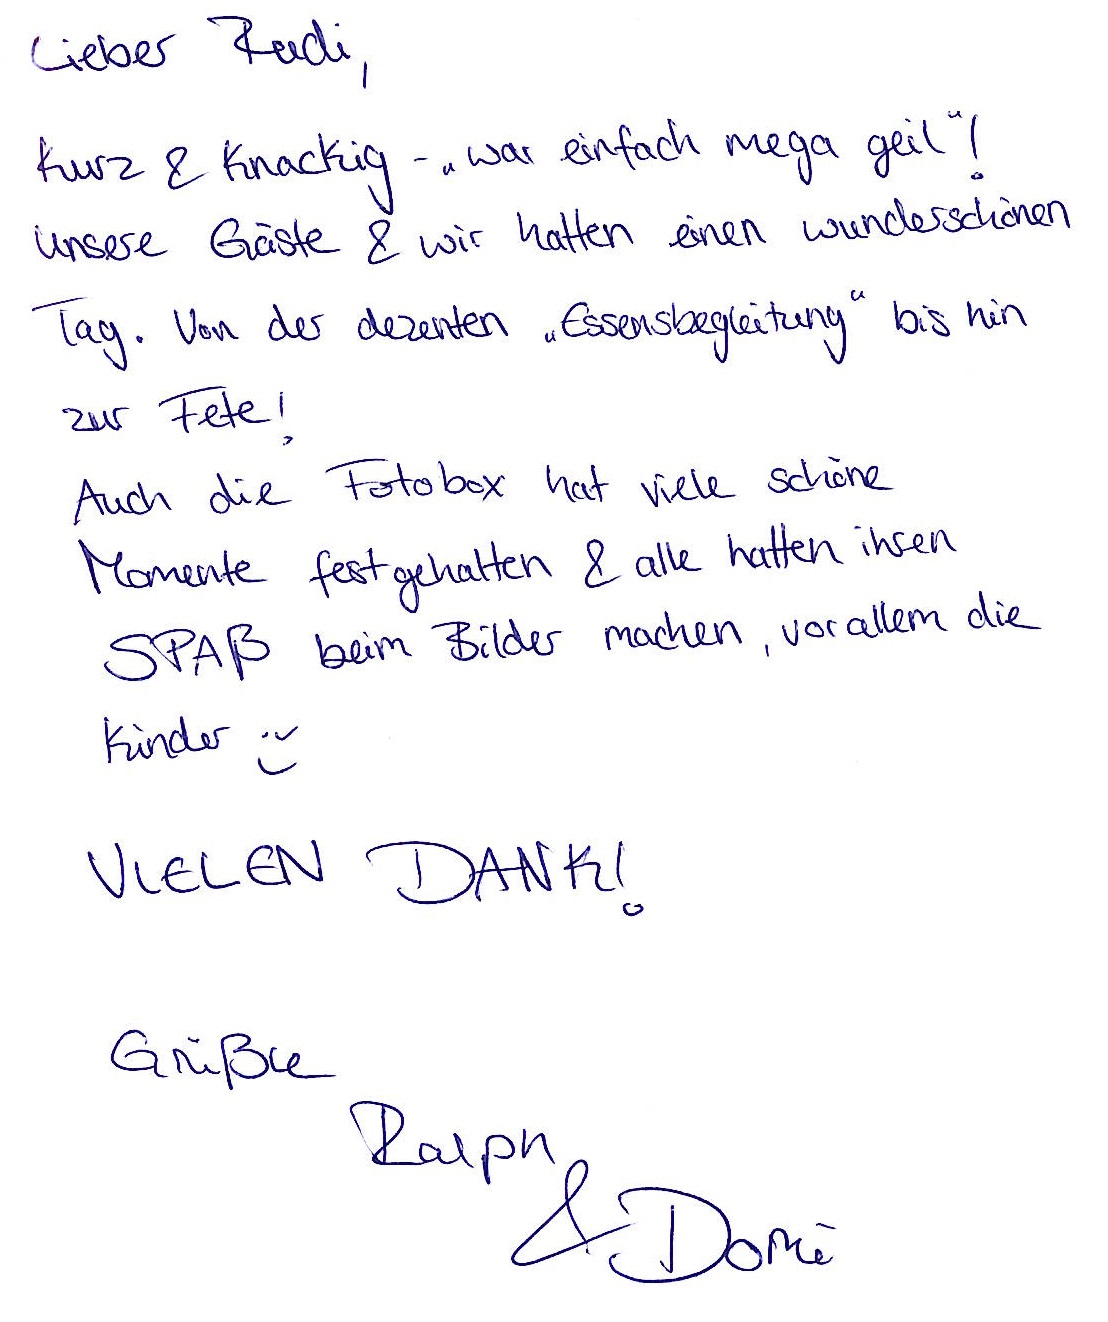 Lieber Rudi,
kurz & knackig - „war einfach mega geil“!
Unsere Gäste & wir hatten einen wunderschönen
Tag. Von der dezenten „Essensbegleitung“ bis hin
zur Fete!
Auch die Fotobox hat viele schöne
Momente festgehalten & alle hatten ihren
SPAß beim Bilder machen, vor allem die
Kinder :)
VIELEN DANK!
Grüßle
Ralph
& Domi